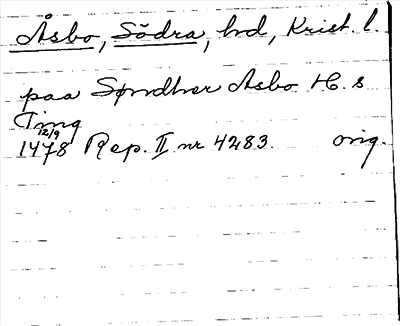 Åsbo, Södra, hd, Krist. l.
paa Søndher Asbo H.s
Ting
12/9
1478 Rep. II nr 4283. orig.